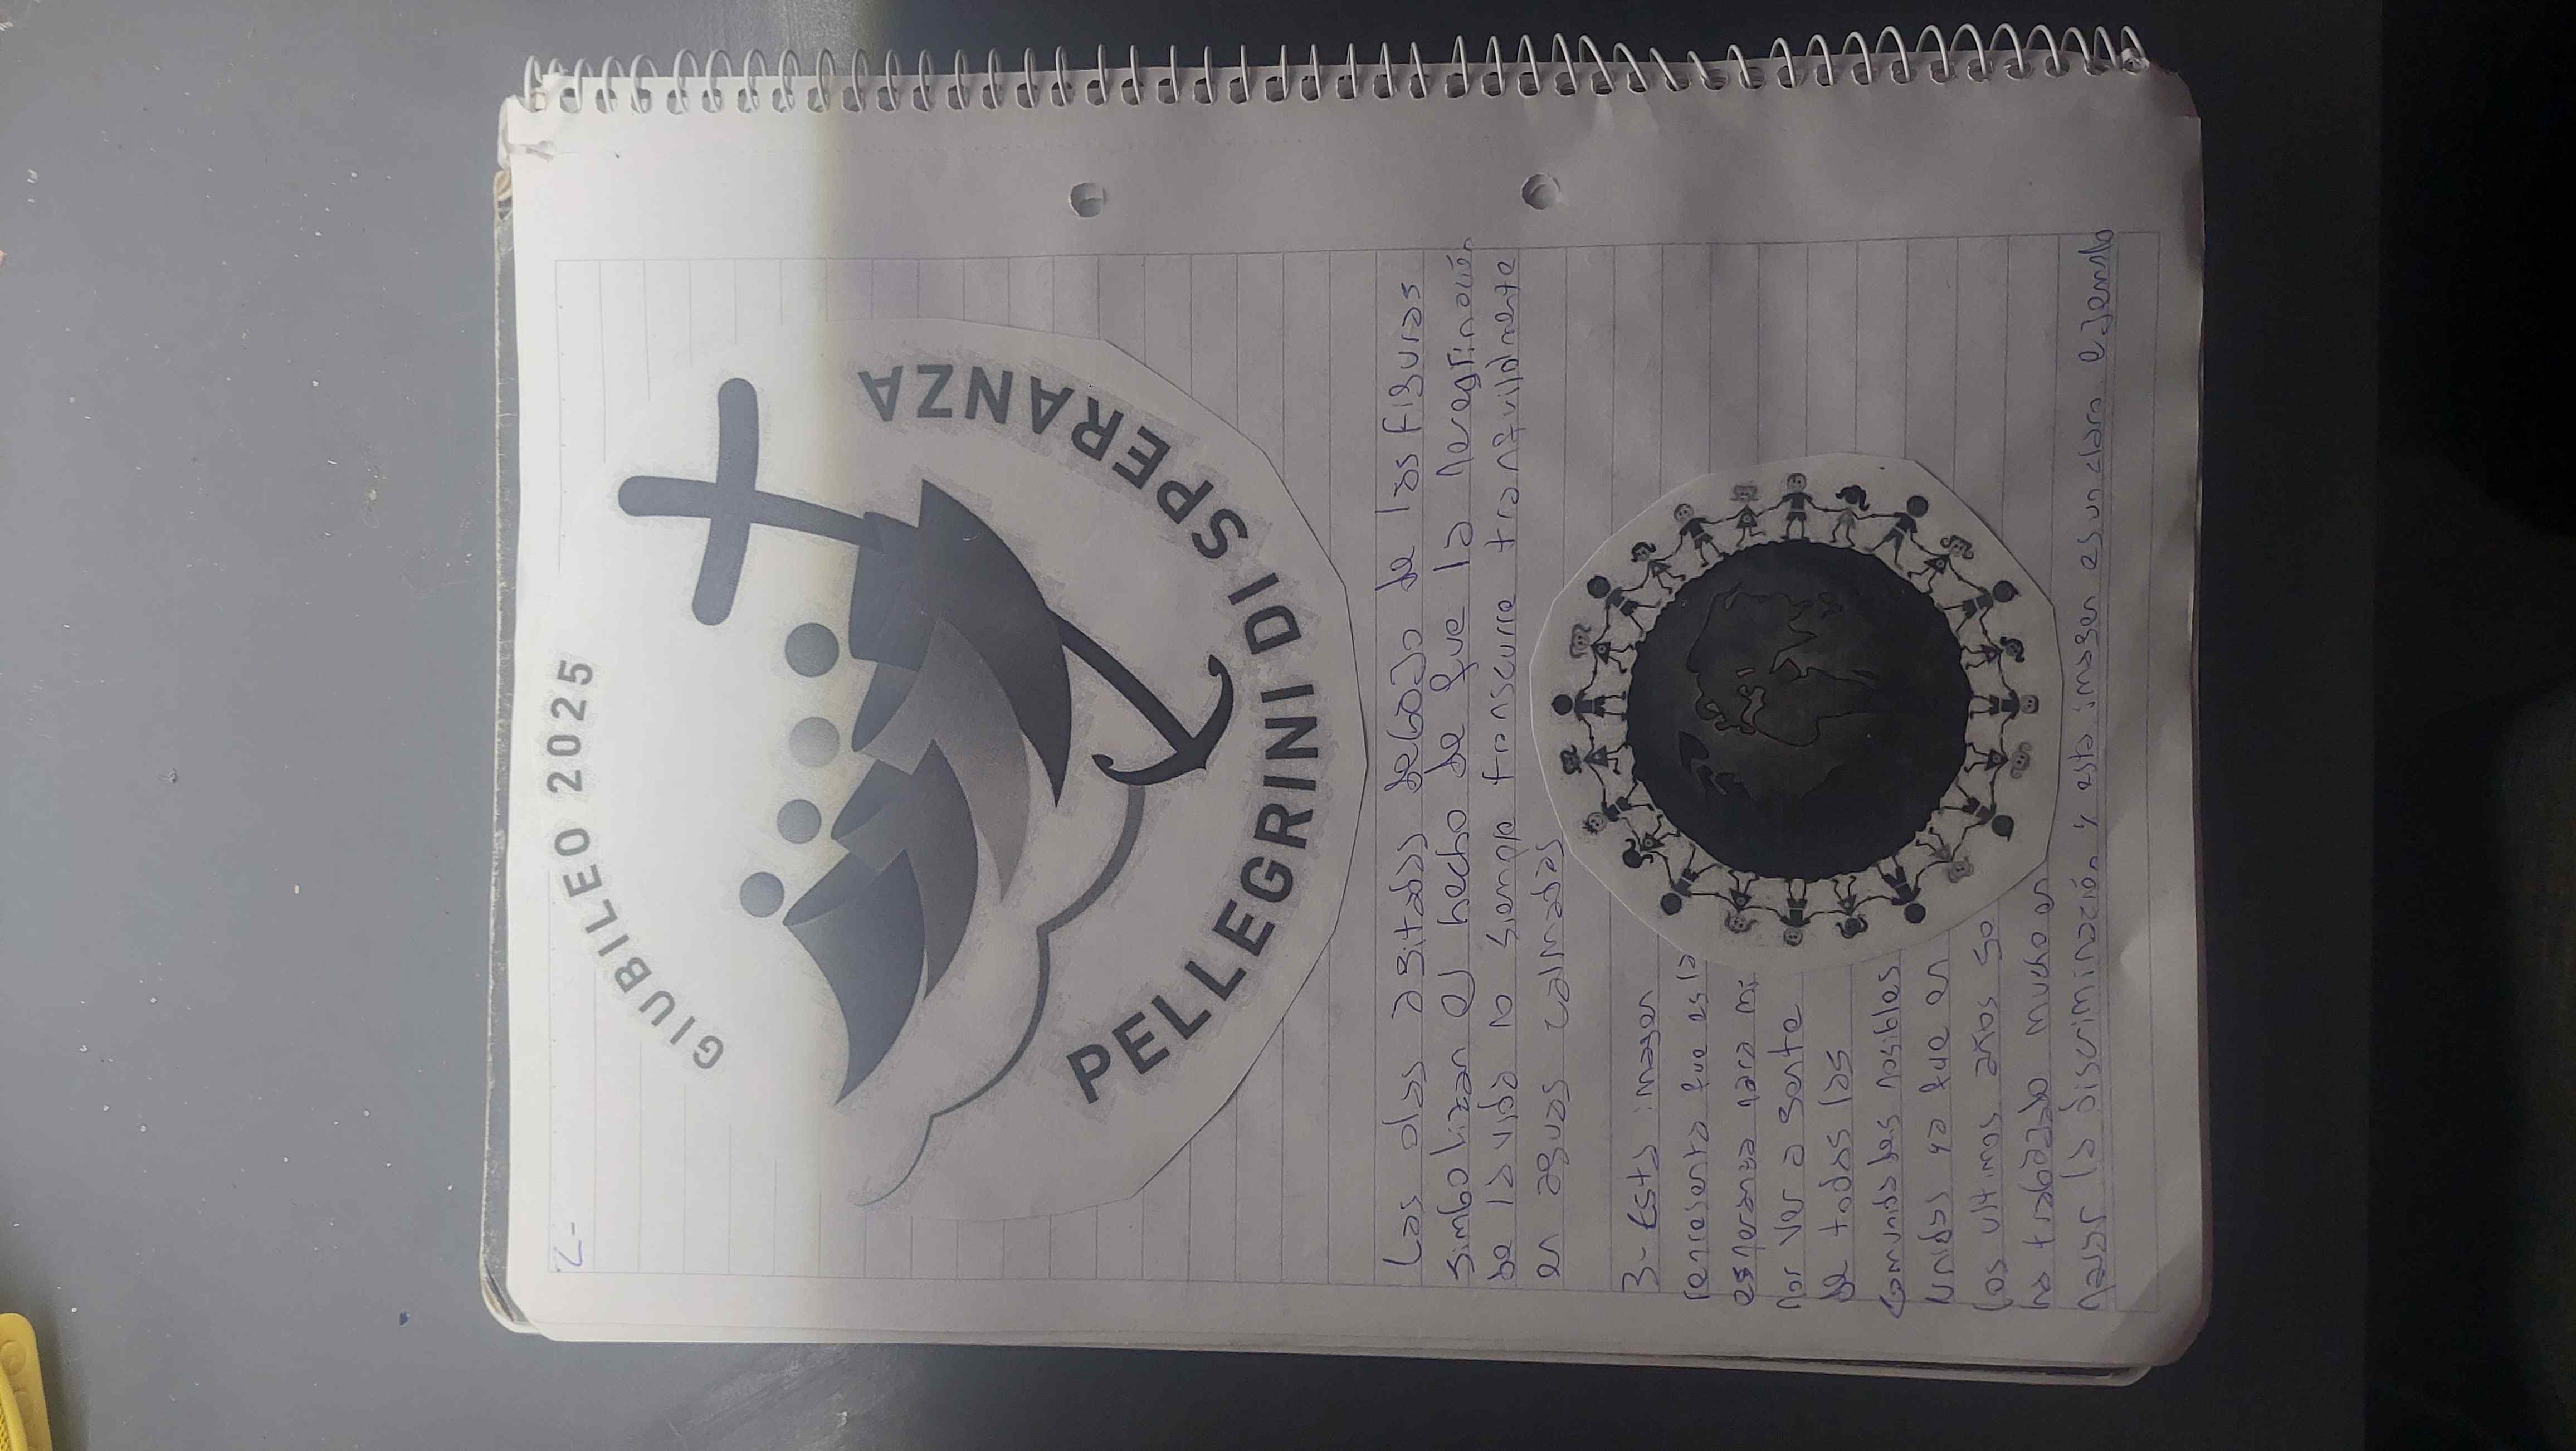 2-
GIUBILEO 2025
PELLEGRINI DI SPERANZA
Las olas agitadas debajo de las figuras
simbolizan el hecho de que la peregrinación
de la vida no siempre transcurre tranquilamente
en aguas calmadas
3- Esta imagen
representa que es la
esperanza para mi
por ver a gente
de todas las
comunidades posibles
unidas ya que en
los ultimos años se
ha trabajado mucho en
parar la discriminación y esta imagen es un claro ejemplo